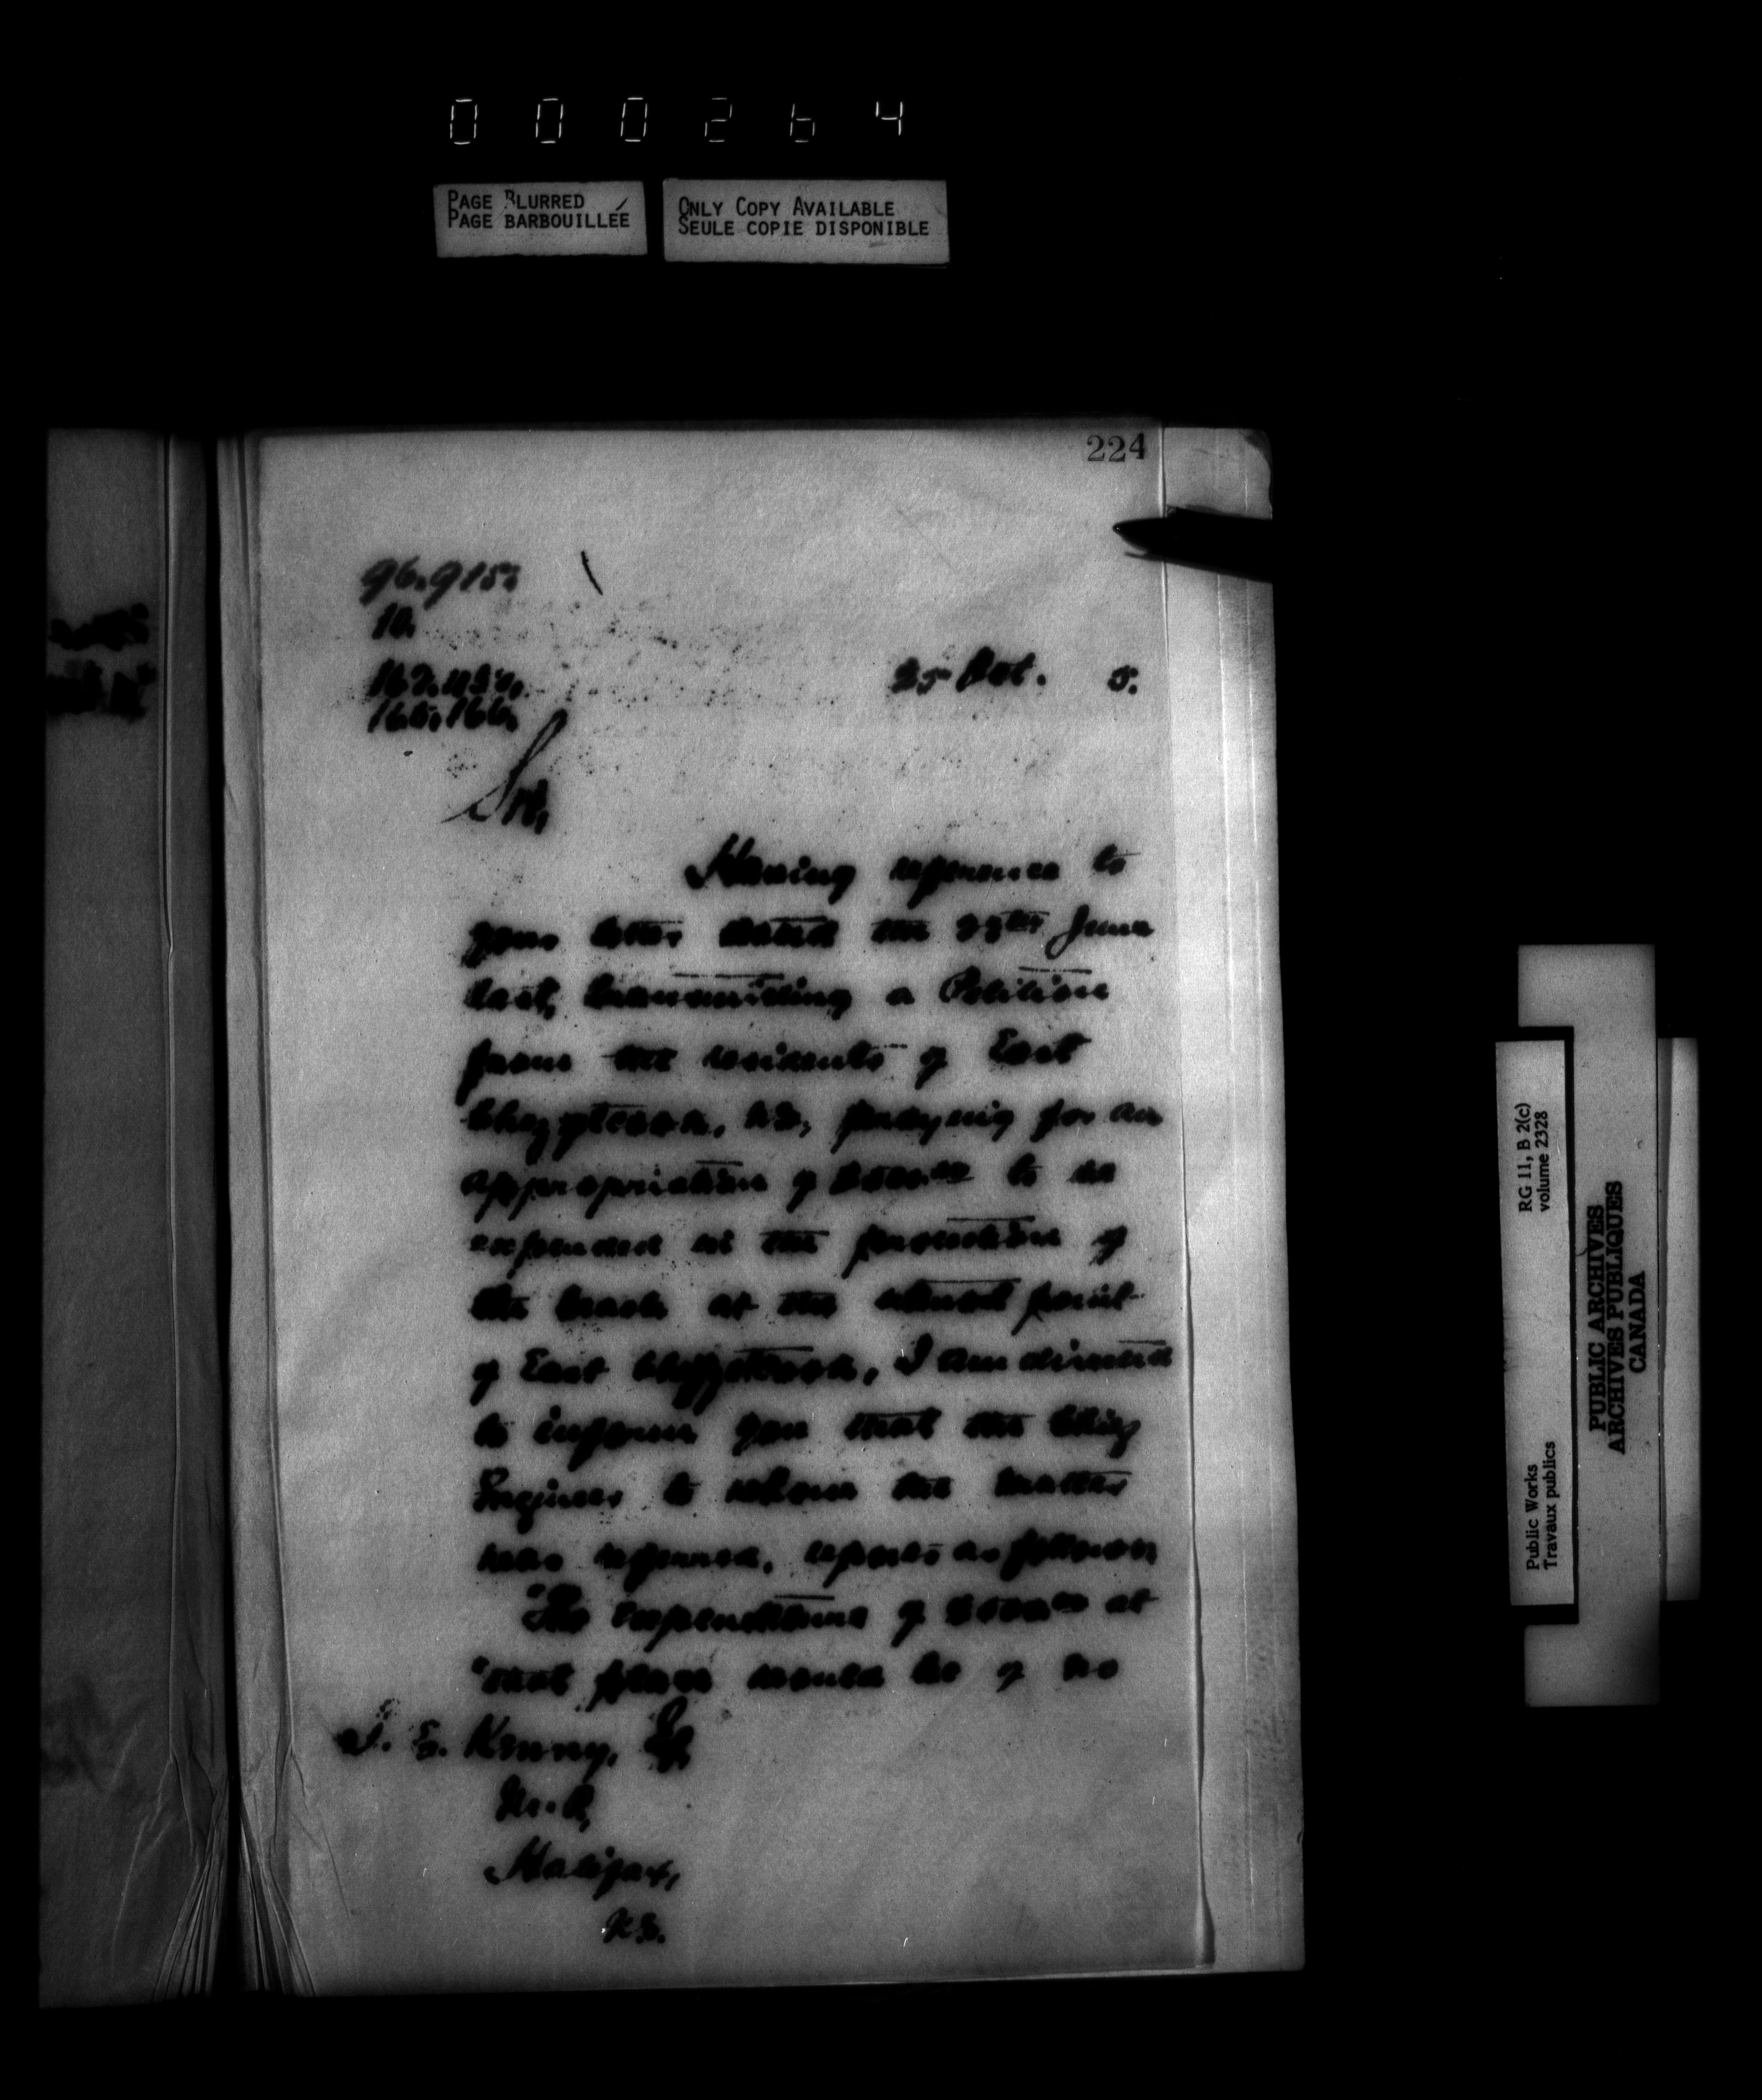 000264
PAGE BLURRED
PAGE BARBOUILLÉE
ONLY COPY AVAILABLE
SEULE COPIE DISPONIBLE
224
96.915
10.
25 Oct. 5.
Sir,
Having reference to
your letter dated the June
last, transmitting a Petition
from the residents of East
Chezzetcook, N.S., praying for an
appropriation of to be
expended in the protection of
the beach at the point
of East Chezzetcook, I am directed
to inform you that the Chief
Engineer to whom the matter
was referred, reports as follows
"The expenditure of at
"that place would be of no
T. E. Kenny, Esq,
M.P,
Halifax,
N.S.
RG 11, B 2(c)
volume 2328
Public Works
Travaux publics
PUBLIC ARCHIVES
ARCHIVES PUBLIQUES
CANADA